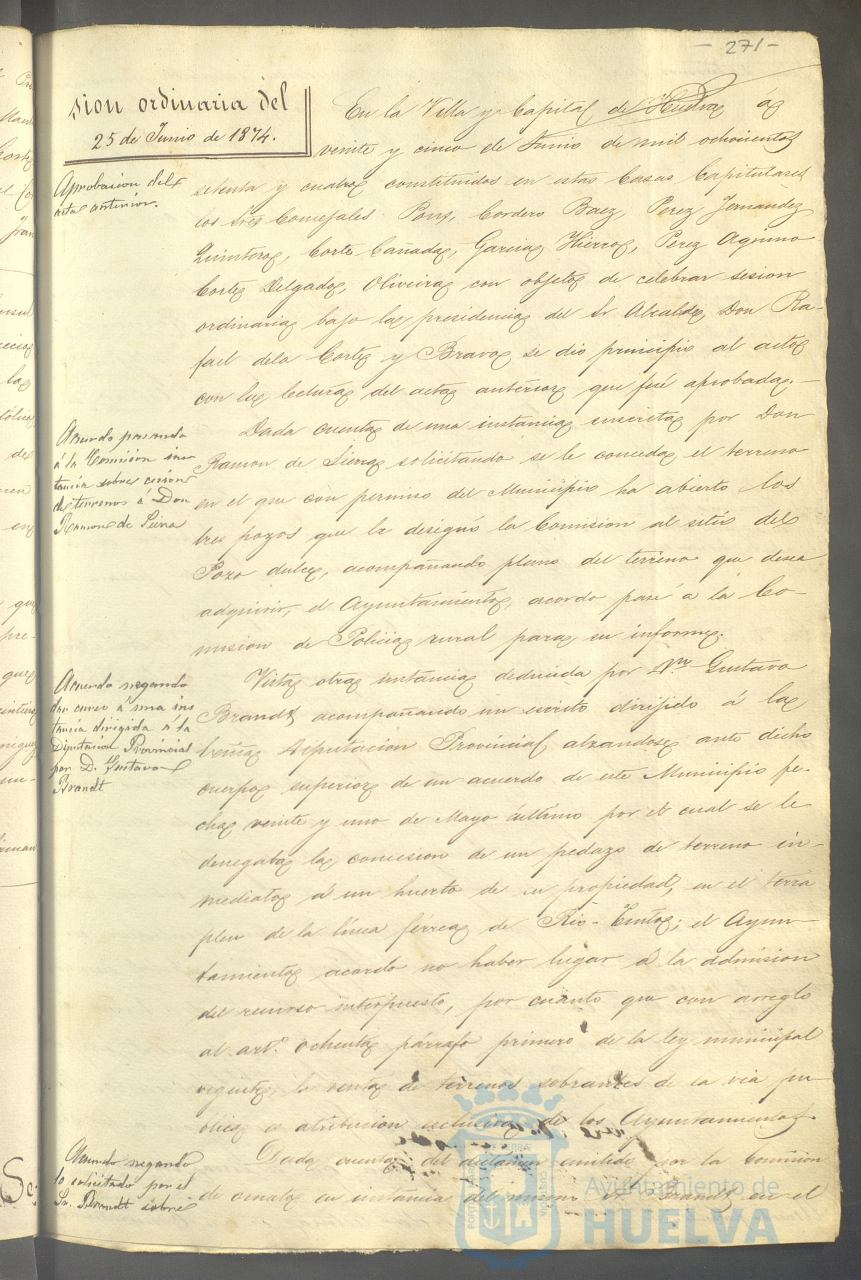 - 271 -
sion ordinaria del
25 de Junio de 1874.
En la Villa y Capital de Huelva á
veinte y cinco de Junio de mil ochocientos
setenta y cuatro constituidos en estas Casas Capitulares
los Sres Concejales Pons, Cordero Baez, Perez Fernandez
Quintero, Corte Cañada, Garcia Hierro, Perez Aquino
Corte Delgado, Oliveira con objeto de celebrar sesion
ordinaria bajo la presidencia del Sr Alcalde Don Ra-
fael de la Corte y Bravo se dio principio al acto
con la lectura del acta anterior que fué aprobada.
Aprobacion del
acta anterior.
Dada cuenta de una instancia suscrita por Don
Ramon de Sierra solicitando se le conceda el terreno
en el que con permiso del Municipio ha abierto los
tres pozos que le designó la Comision al sitio del
Pozo dulce, acompañando plano del terreno que desea
adquirir, el Ayuntamiento, acordo pase á la Co-
mision de Policia rural para su informe.
Acuerdo pasando
á la Comision ins
tancia sobre cesion
de terrenos á Don
Ramon de Sierra
Vista otra instancia deducida por Mr Gustavo
Brandt acompañando un escrito dirijido á la
Diputacion Provincial alzandose ante dicho
cuerpo superior de un acuerdo de este Municipio fe-
cha veinte y uno de Mayo último por el cual se le
denegaba la concesion de un pedazo de terreno in-
mediato á un huerto de su propiedad, en el terra
plen de la línea férrea de Rio-Tinto; el Ayun-
tamiento acordo no haber lugar á la admision
del recurso interpuesto, por cuanto que con arreglo
al artº ochenta párrafo primero de la ley municipal
vigente, la venta de terrenos sobrantes de la via pu-
blica es atribucion esclusiva de los Ayuntamientos.
Acuerdo negando
dar curso á una ins
tancia dirigida á la
Diputacion Provincial
por D. Gustavo
Brandt
Dada cuenta del dictamen emitido por la Comision
de ornato en instancia del mismo Sr Brandt en el
Acuerdo negando
lo solicitado por el
Sr. Brandt sobre
Ayuntamiento de
HUELVA